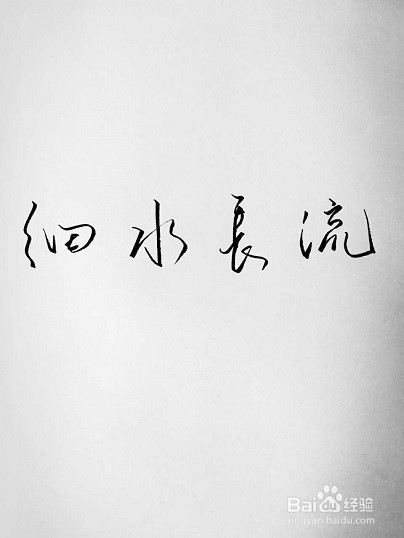 细水長流
Bai经验
jingyan.baidu.com